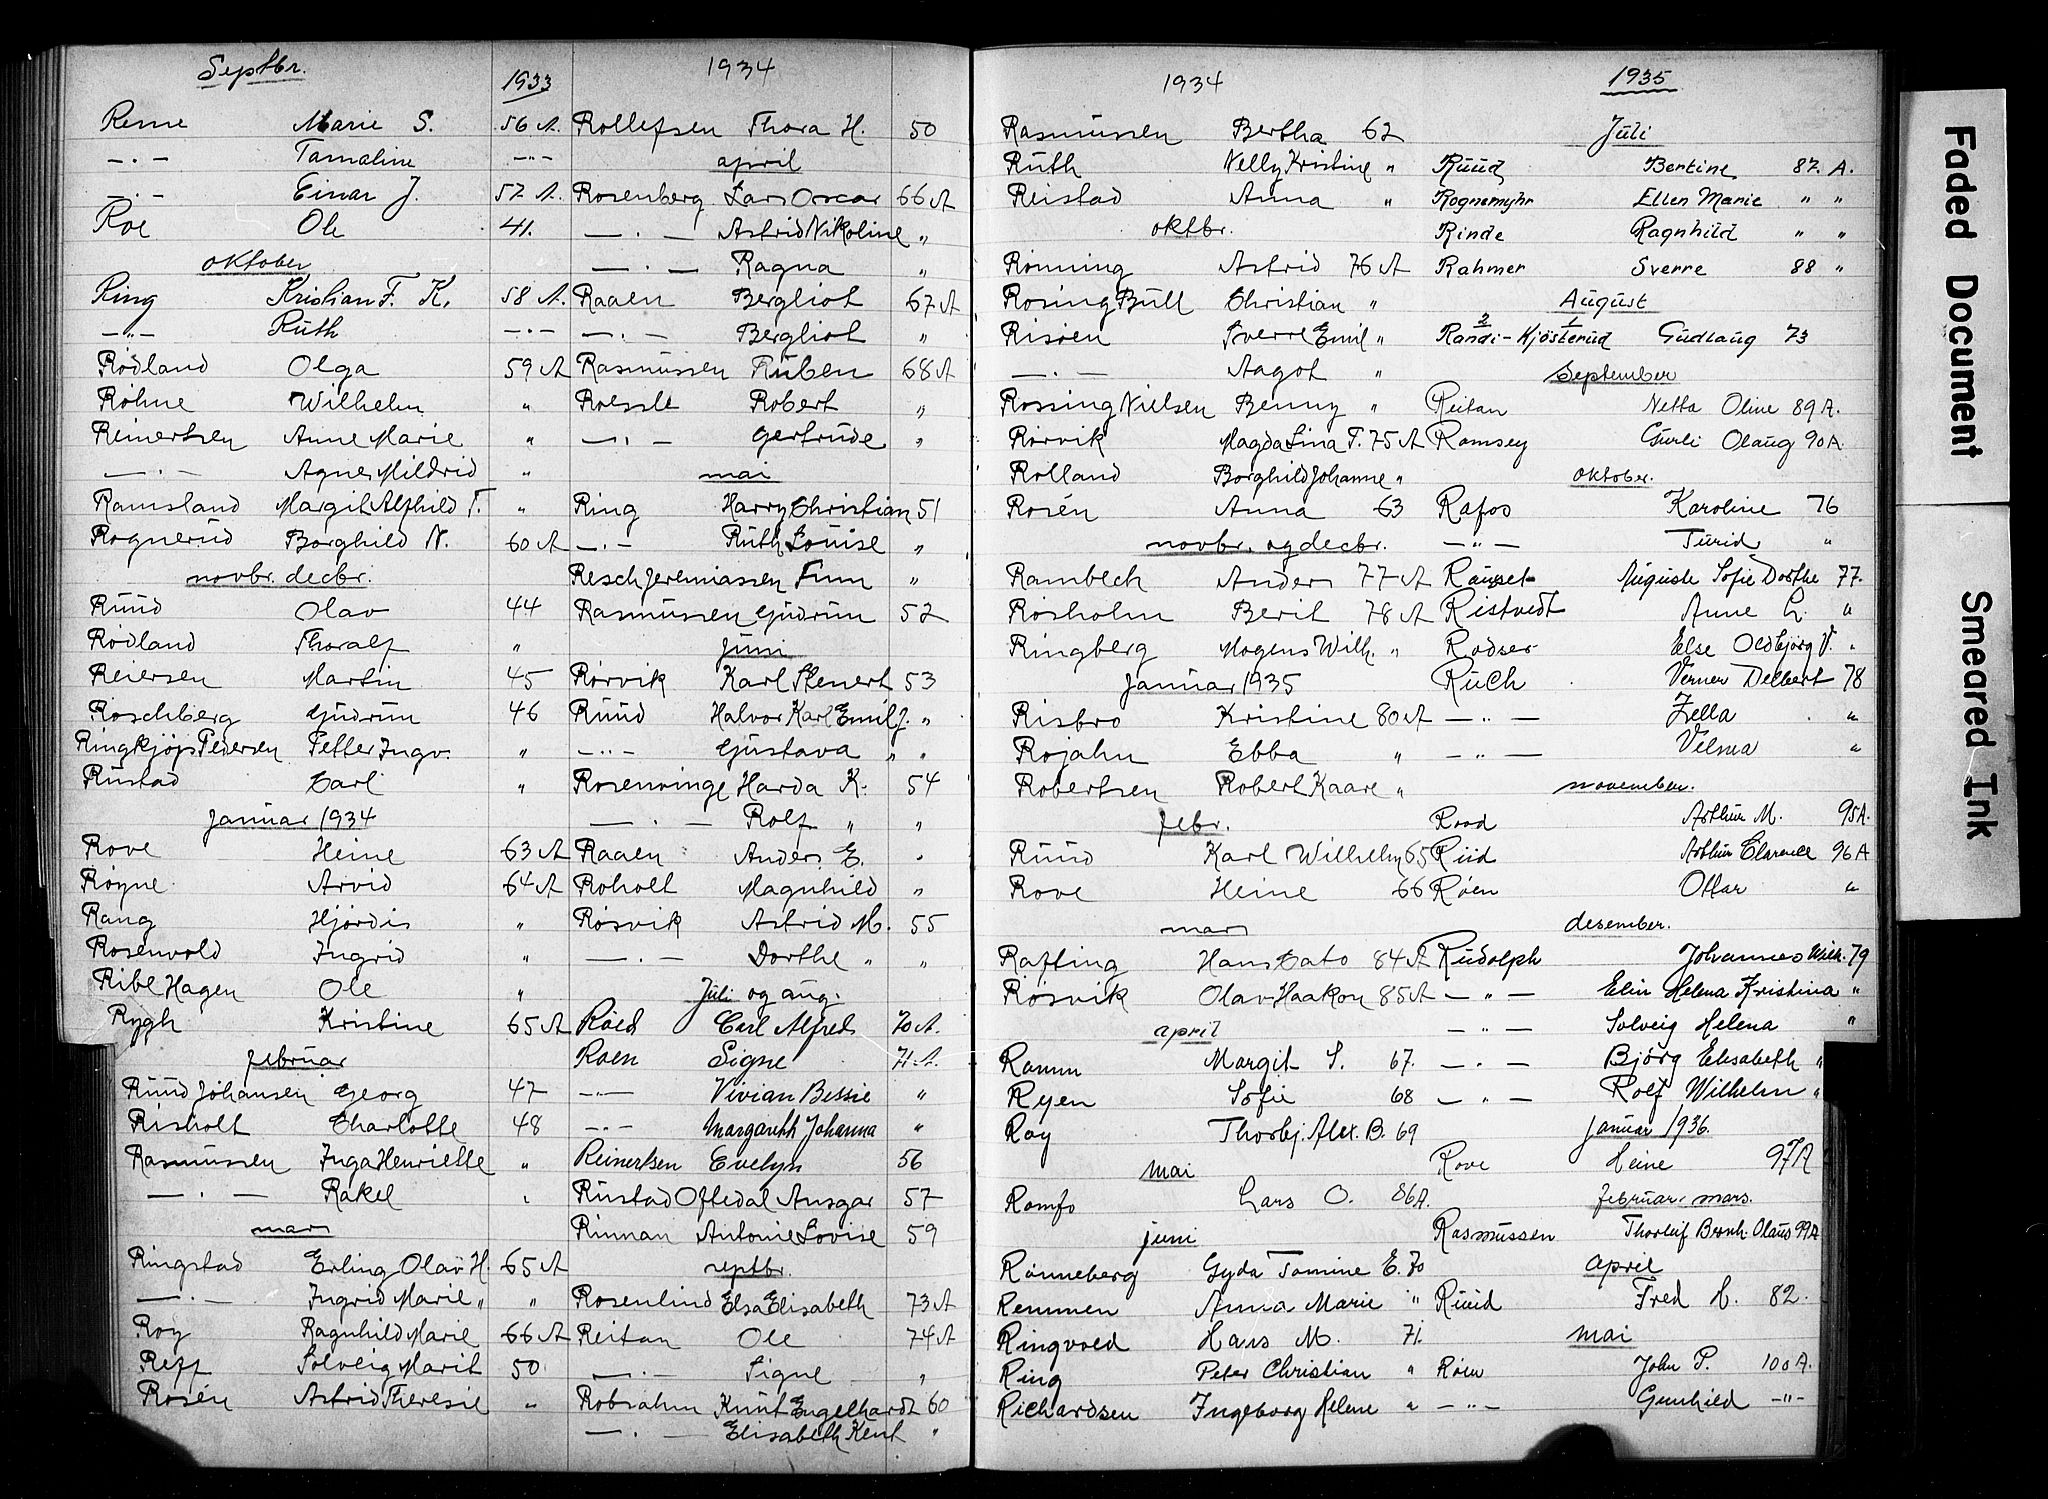 Septbr. 1933
Reme Marie S. 56 A.
—·— Tamaline —"—
—·— Einar J. 57 A.
Roe Ole 41.
oktober
Ring Kristian F. K. 58 A.
—"— Ruth —·—
Rødland Olga 59 A
Røhne Wilhelm "
Reinertsen Anne Marie "
—·— Agnes Mildrid "
Ramsland Margit Alfhild T. "
Rognerud Borghild N. 60 A
novbr. decbr.
Ruud Olav 44
Rødland Thoralf "
Reiersen Martin 45
Roschberg Gudrun 46
Ringkjøp Pedersen Petter Ingv. "
Rustad Carl "
Januar 1934
Rove Heine 63 A
Røyne Arvid 64 A
Rang Hjørdis "
Rosenvold Ingrid "
Ribe Hagen Ole "
Rygh Kristine 65 A
februar
Ruud Johansen Georg 47
Risholt Charlotte 48
Rasmussen Inga Henriette "
—·— Rakel "
mars
Ringstad Erling Olav H. 65 A
—·— Ingrid Marie " "
Roy Ragnhild Marie 66 A
Reff Solveig Marit 50
Rosén Astrid Theresie "
1934
Rollefsen Thora H. 50
april
Rosenberg Lars Oscar 66 A
—·— Astrid Nikoline "
—·— Ragna "
Raaen Bergliot 67 A
—·— Bergliot "
Rasmussen Ruben 68 A
Roessle Robert "
—·— Gertrude "
mai
Ring Harry Christian 51
—·— Ruth Louise "
Resch Jeremiassen Finn "
Rasmussen Gudrun 52
Juni
Rørvik Karl Stenert 53
Ruud Halvor Karl Emil J. "
—"— Gustava " "
Rosenvinge Harda K. 54
—·— Rolf " "
Raaen Anders E. "
Roholt Magnhild "
Røsvik Astrid M. 55
—·— Dorthe " "
Juli og aug.
Røed Carl Alfred 70 A.
Roen Signe 71. A.
—"— Vivian Bessie "
—"— Margarethh Johanna "
Reinertsen Evelyn 56
Rustad Oftedal Ansgar 57
Rinnan Antonie Lovise 59
septbr.
Rosenlind Elsa Elisabeth 73 A
Reitan Ole 74 A
—·— Signe "
Robsahm Knut Engelhardt 60
—·— Elisabeth Kent "
1934
Rasmussen Bertha 62
Ruth Nelly Kristine "
Reistad Anna "
oktbr.
Rønning Astrid 76 A
Rosing Bull Christian "
Risøen Sverre Emil "
—·— Aagot "
Rossing Nielsen Benny "
Rørvik Magda Lina F. 75 A
Rolland Borghild Johanne "
Rosén Anna 63
novbr. og decbr.
Rambech Anders 77 A
Røsholm Berit 78 A
Ringberg Mogens Wilh. "
Januar 1935
Risbro Kristine 80 A
Rojahn Ebba "
Robertsen Robert Kaare "
febr.
Ruud Karl Wilhelm 65
Rove Heine 66
mars
Rafting Hans Cato 84 A
Røsvik Olav Haakon 85 A
april
Ramm Margit S. 67.
Ryen Sofie 68
Roy Thorbj. Alex. B. 69
mai
Romfo Lars O. 86 A.
juni
Rønneberg Gyda Tomine E. 70
Remmen Anna Marie "
Ringvold Hans M. 71.
Ring Peter Christian "
Richardsen Ingeborg Helene "
1935
Juli
Ruud Bertine 87. A.
Rognemyhr Ellen Marie " "
Rinde Ragnhild " "
Rahmer Sverre 88 "
August
2 1
Randi-Kjösterud Gudlaug 73
September
Reitan Netta Oline 89 A.
Ramsey Gurli Olaug 90 A.
oktober.
Rafos Karoline 76
—"— Turid "
Rausset Auguste Sofie Dorthe 77.
Ristvedt Anne L. "
Rodser Else Oldbjørg V. "
Ruch Verner Delbert 78
—"— Zella "
—"— Velma "
november.
Rood Arthur M. 95 A.
Rud Arthur Clarence 96 A
Røen Ottar "
desember.
Rudolph Johannes Wilh. 79
—"— Elin Helena Kristina "
—"— Solveig Helena "
—·— Björg Elisabeth "
—"— Rolf Wilhelm "
Januar 1936.
Rove Heine 97 A
februar. mars.
Rasmussen Thorleif Bernh. Olaus 99 A
april
Ruud Fred C. 82.
mai
Røen John P. 100 A.
—"— Gunhild —"—
Faded Document
Smeared Ink